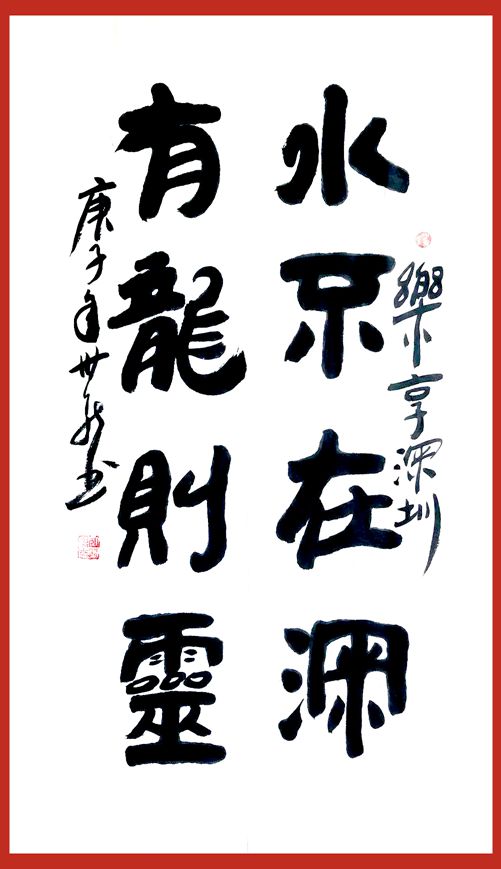 樂享深圳
水不在深
有龍則靈
庚子年世书